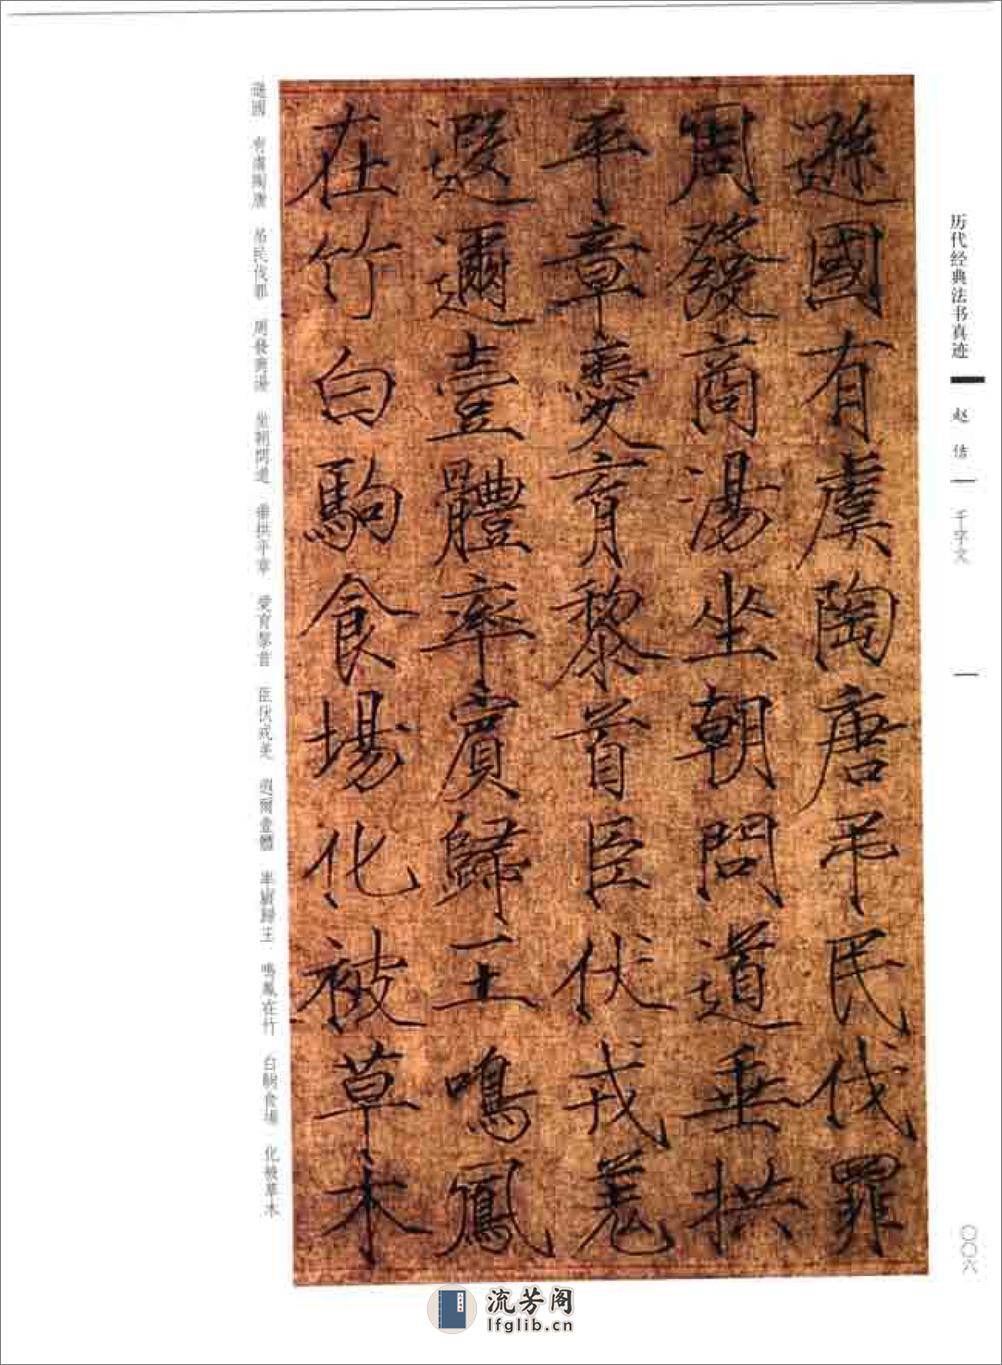 历代经典法书真迹
赵佶
千字文
〇〇六
遜國有虞陶唐弔民伐罪
周發商湯坐朝問道垂拱
平章愛育黎首臣伏戎羌
遐邇壹體率賓歸王鳴鳳
在竹白駒食場化被草木
遜國 有虞陶唐 吊民伐罪 周發商湯 坐朝問道 垂拱平章 愛育黎首 臣伏戎羌 遐爾壹體 率賓歸王 鳴鳳在竹 白駒食場 化被草木
流芳阁
lfglib.cn